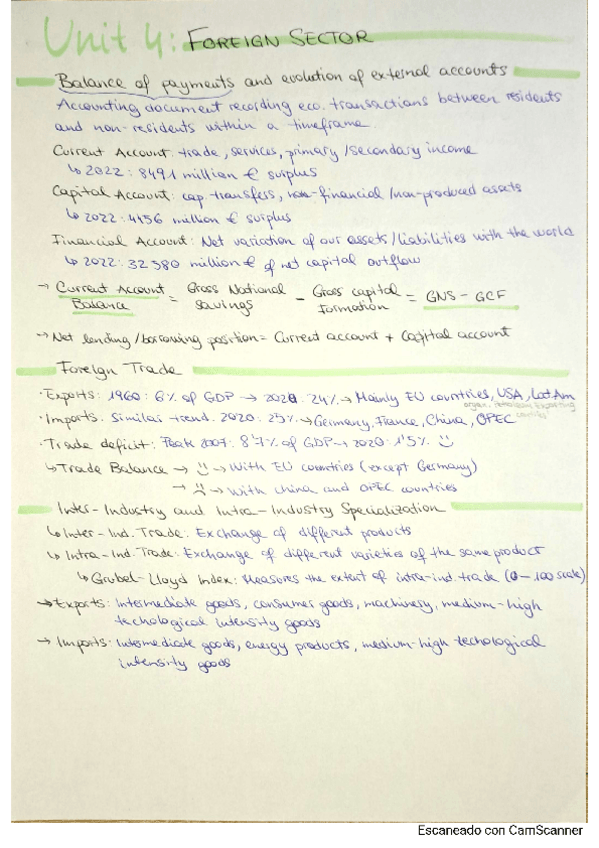 Unit 4: FOREIGN SECTOR
Balance of payments and evolution of external accounts
Accounting document recording eco. transactions between residents
and non-residents within a timeframe.
Current Account: trade, services, primary/secondary income
↳ 2022: 8491 million € surplus
Capital Account: cap. transfers, non-financial/non-produced assets
↳ 2022: 4156 million € surplus
Financial Account: Net variation of our assets/liabilities with the world
↳ 2022: 32380 million € of net capital outflow
→ Current Account Balance = Gross National Savings - Gross capital Formation = GNS - GCF
→ Net lending/borrowing position = Current account + Capital account
Foreign Trade
· Exports: 1960: 6% of GDP → 2020: 24% → Mainly EU countries, USA, LatAm
· Imports: Similar trend. 2020: 25% → Germany, France, China, OPEC
organ. petroleum exporting
countries
· Trade deficit: Peak 2007: 8'7% of GDP → 2020: 1'5% :)
↳ Trade Balance → :) → With EU countries (except Germany)
→ :( → With China and OPEC countries
Inter-Industry and Intra-Industry Specialization
↳ Inter-Ind. Trade: Exchange of different products
↳ Intra-Ind. Trade: Exchange of different varieties of the same product
↳ Grubel-Lloyd Index: Measures the extent of intra-ind. trade (0-100 scale)
→ Exports: Intermediate goods, consumer goods, machinery, medium-high
techological intensity goods
→ Imports: Intermediate goods, energy products, medium-high techological
intensity goods
Escaneado con CamScanner